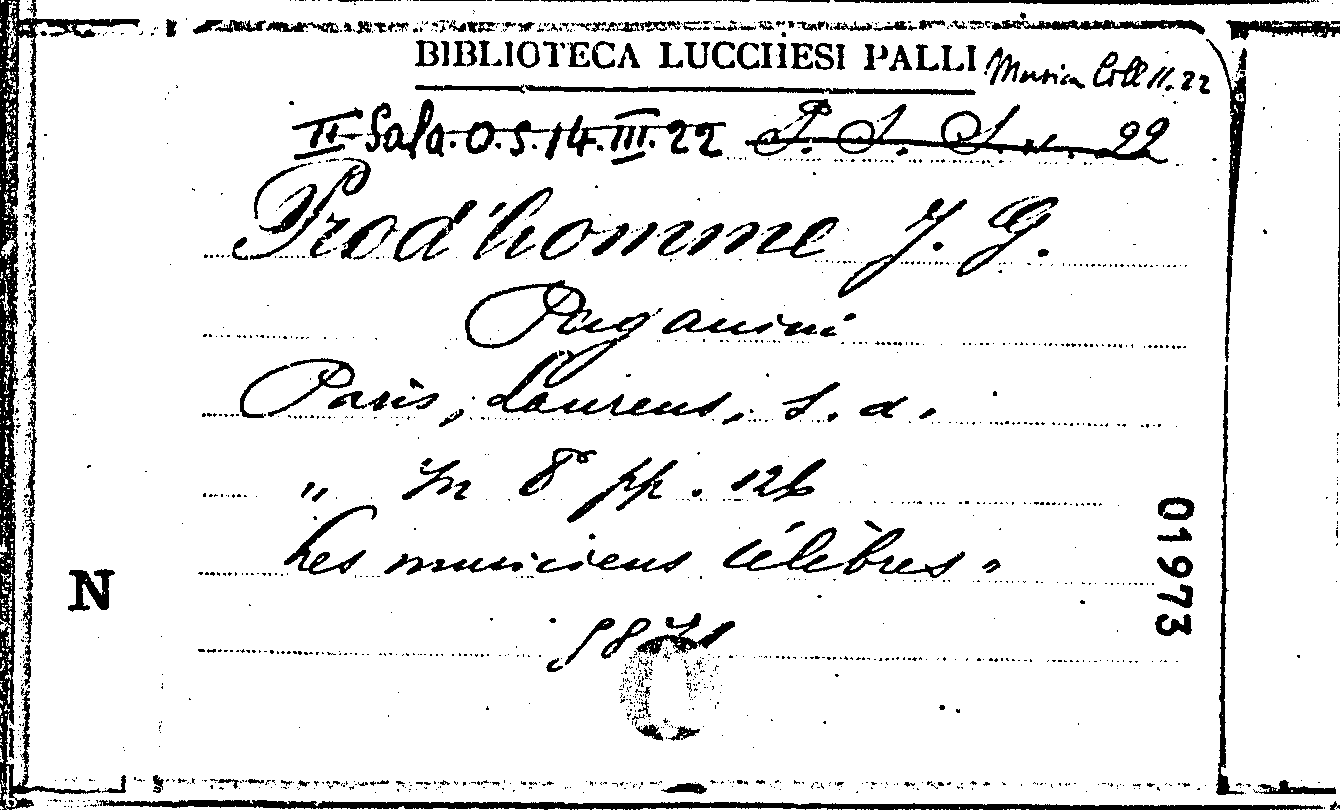 BIBLIOTECA LUCCHESI PALLI Musica Coll 11. 22
II Sala. O. S. 14. III. 22 P. S. S. 22
Prod'homme J. G.
Paganini
Paris, Laurens, s. d.
„ In 8° pp. 126
Les musiciens célèbres „
01973
N
C